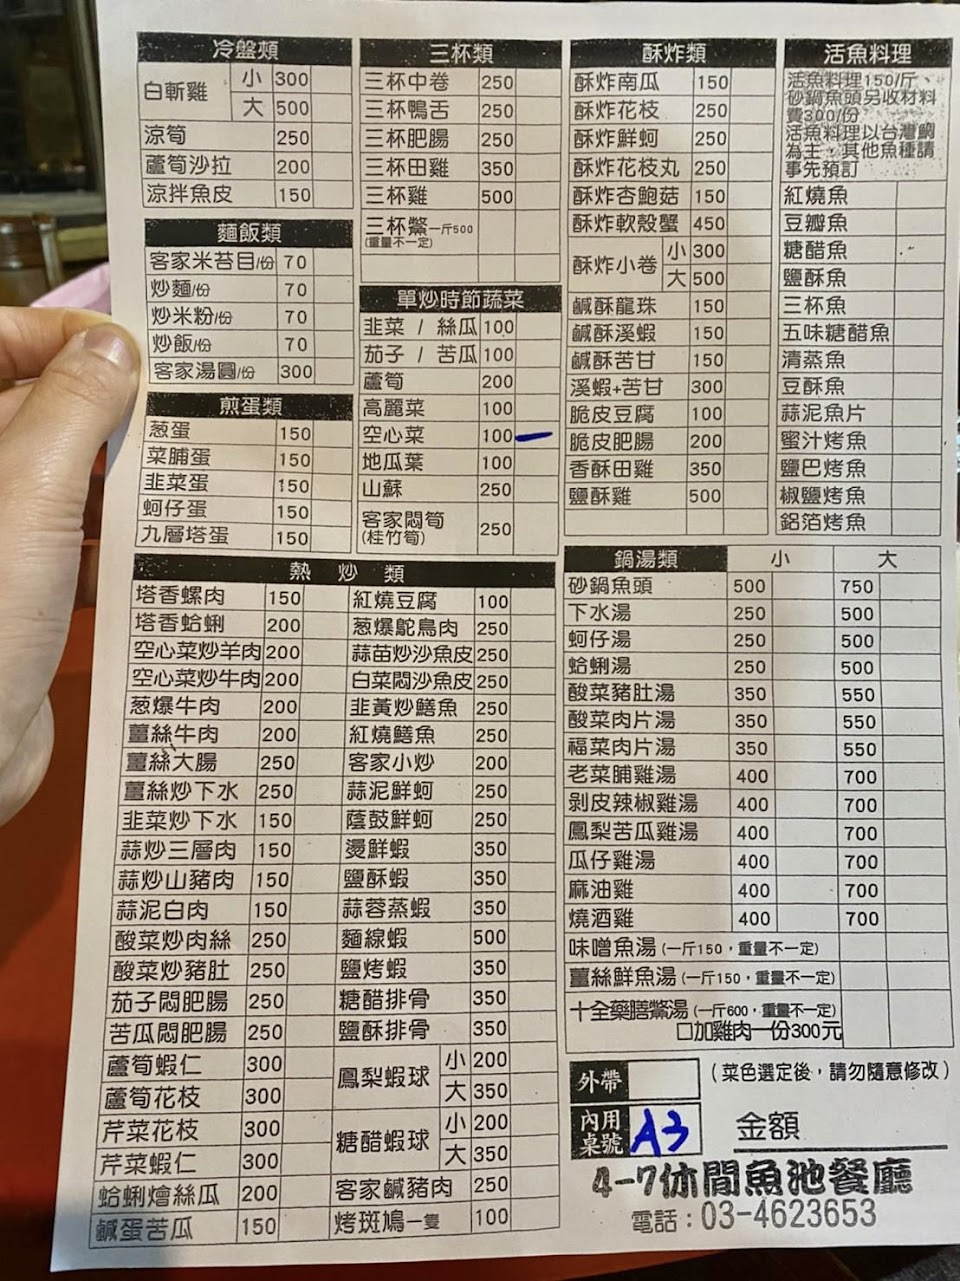 冷盤類
白斬雞 小 300
大 500
涼筍 250
蘆筍沙拉 200
涼拌魚皮 150
麵飯類
客家米苔目/份 70
炒麵/份 70
炒米粉/份 70
炒飯/份 70
客家湯圓/份 300
煎蛋類
葱蛋 150
菜脯蛋 150
韭菜蛋 150
蚵仔蛋 150
九層塔蛋 150
三杯類
三杯中卷 250
三杯鴨舌 250
三杯肥腸 250
三杯田雞 350
三杯雞 500
三杯鱉一斤500
(重量不一定)
單炒時節蔬菜
韭菜 / 絲瓜 100
茄子 / 苦瓜 100
蘆筍 200
高麗菜 100
空心菜 100
地瓜葉 100
山蘇 250
客家悶筍 250
(桂竹筍)
酥炸類
酥炸南瓜 150
酥炸花枝 250
酥炸鮮蚵 250
酥炸花枝丸 250
酥炸杏鮑菇 150
酥炸軟殼蟹 450
酥炸小卷 小 300
大 500
鹹酥龍珠 150
鹹酥溪蝦 150
鹹酥苦甘 150
溪蝦+苦甘 300
脆皮豆腐 100
脆皮肥腸 200
香酥田雞 350
鹽酥雞 500
活魚料理
活魚料理150/斤、
砂鍋魚頭另收材料
費300/份
活魚料理以台灣鯛
為主，其他魚種請
事先預訂
紅燒魚
豆瓣魚
糖醋魚
鹽酥魚
三杯魚
五味糖醋魚
清蒸魚
豆酥魚
蒜泥魚片
蜜汁烤魚
鹽巴烤魚
椒鹽烤魚
鋁箔烤魚
熱炒類
塔香螺肉 150
塔香蛤蜊 200
空心菜炒羊肉 200
空心菜炒牛肉 200
葱爆牛肉 200
薑絲牛肉 200
薑絲大腸 250
薑絲炒下水 250
韭菜炒下水 150
蒜炒三層肉 150
蒜炒山豬肉 150
蒜泥白肉 150
酸菜炒肉絲 250
酸菜炒豬肚 250
茄子悶肥腸 250
苦瓜悶肥腸 250
蘆筍蝦仁 300
蘆筍花枝 300
芹菜花枝 300
芹菜蝦仁 300
蛤蜊燴絲瓜 200
鹹蛋苦瓜 150
紅燒豆腐 100
葱爆鴕鳥肉 250
蒜苗炒沙魚皮 250
白菜悶沙魚皮 250
韭黃炒鱔魚 250
紅燒鱔魚 250
客家小炒 200
蒜泥鮮蚵 250
蔭鼓鮮蚵 250
燙鮮蝦 350
鹽酥蝦 350
蒜蓉蒸蝦 350
麵線蝦 500
鹽烤蝦 350
糖醋排骨 350
鹽酥排骨 350
鳳梨蝦球 小 200
大 350
糖醋蝦球 小 200
大 350
客家鹹豬肉 250
烤斑鳩一隻 100
鍋湯類 小 大
砂鍋魚頭 500 750
下水湯 250 500
蚵仔湯 250 500
蛤蜊湯 250 500
酸菜豬肚湯 350 550
酸菜肉片湯 350 550
福菜肉片湯 350 550
老菜脯雞湯 400 700
剝皮辣椒雞湯 400 700
鳳梨苦瓜雞湯 400 700
瓜仔雞湯 400 700
麻油雞 400 700
燒酒雞 400 700
味噌魚湯(一斤150，重量不一定)
薑絲鮮魚湯(一斤150，重量不一定)
十全藥膳鱉湯(一斤600，重量不一定)
□加雞肉一份300元
外帶
(菜色選定後，請勿隨意修改)
內用
桌號 A3
金額
4-7休閒魚池餐廳
電話：03-4623653